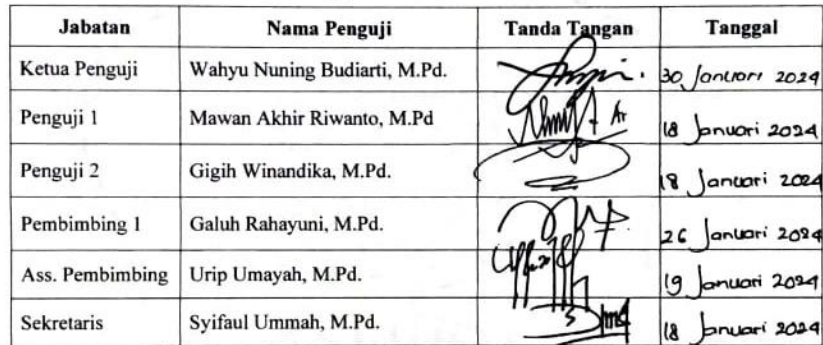 Jabatan Nama Penguji Tanda Tangan Tanggal
Ketua Penguji Wahyu Nuning Budiarti, M.Pd. 30 Januari 2024
Penguji 1 Mawan Akhir Riwanto, M.Pd 18 Januari 2024
Penguji 2 Gigih Winandika, M.Pd. 18 Januari 2024
Pembimbing 1 Galuh Rahayuni, M.Pd. 26 Januari 2024
Ass. Pembimbing Urip Umayah, M.Pd. 19 Januari 2024
Sekretaris Syifaul Ummah, M.Pd. 18 Januari 2024